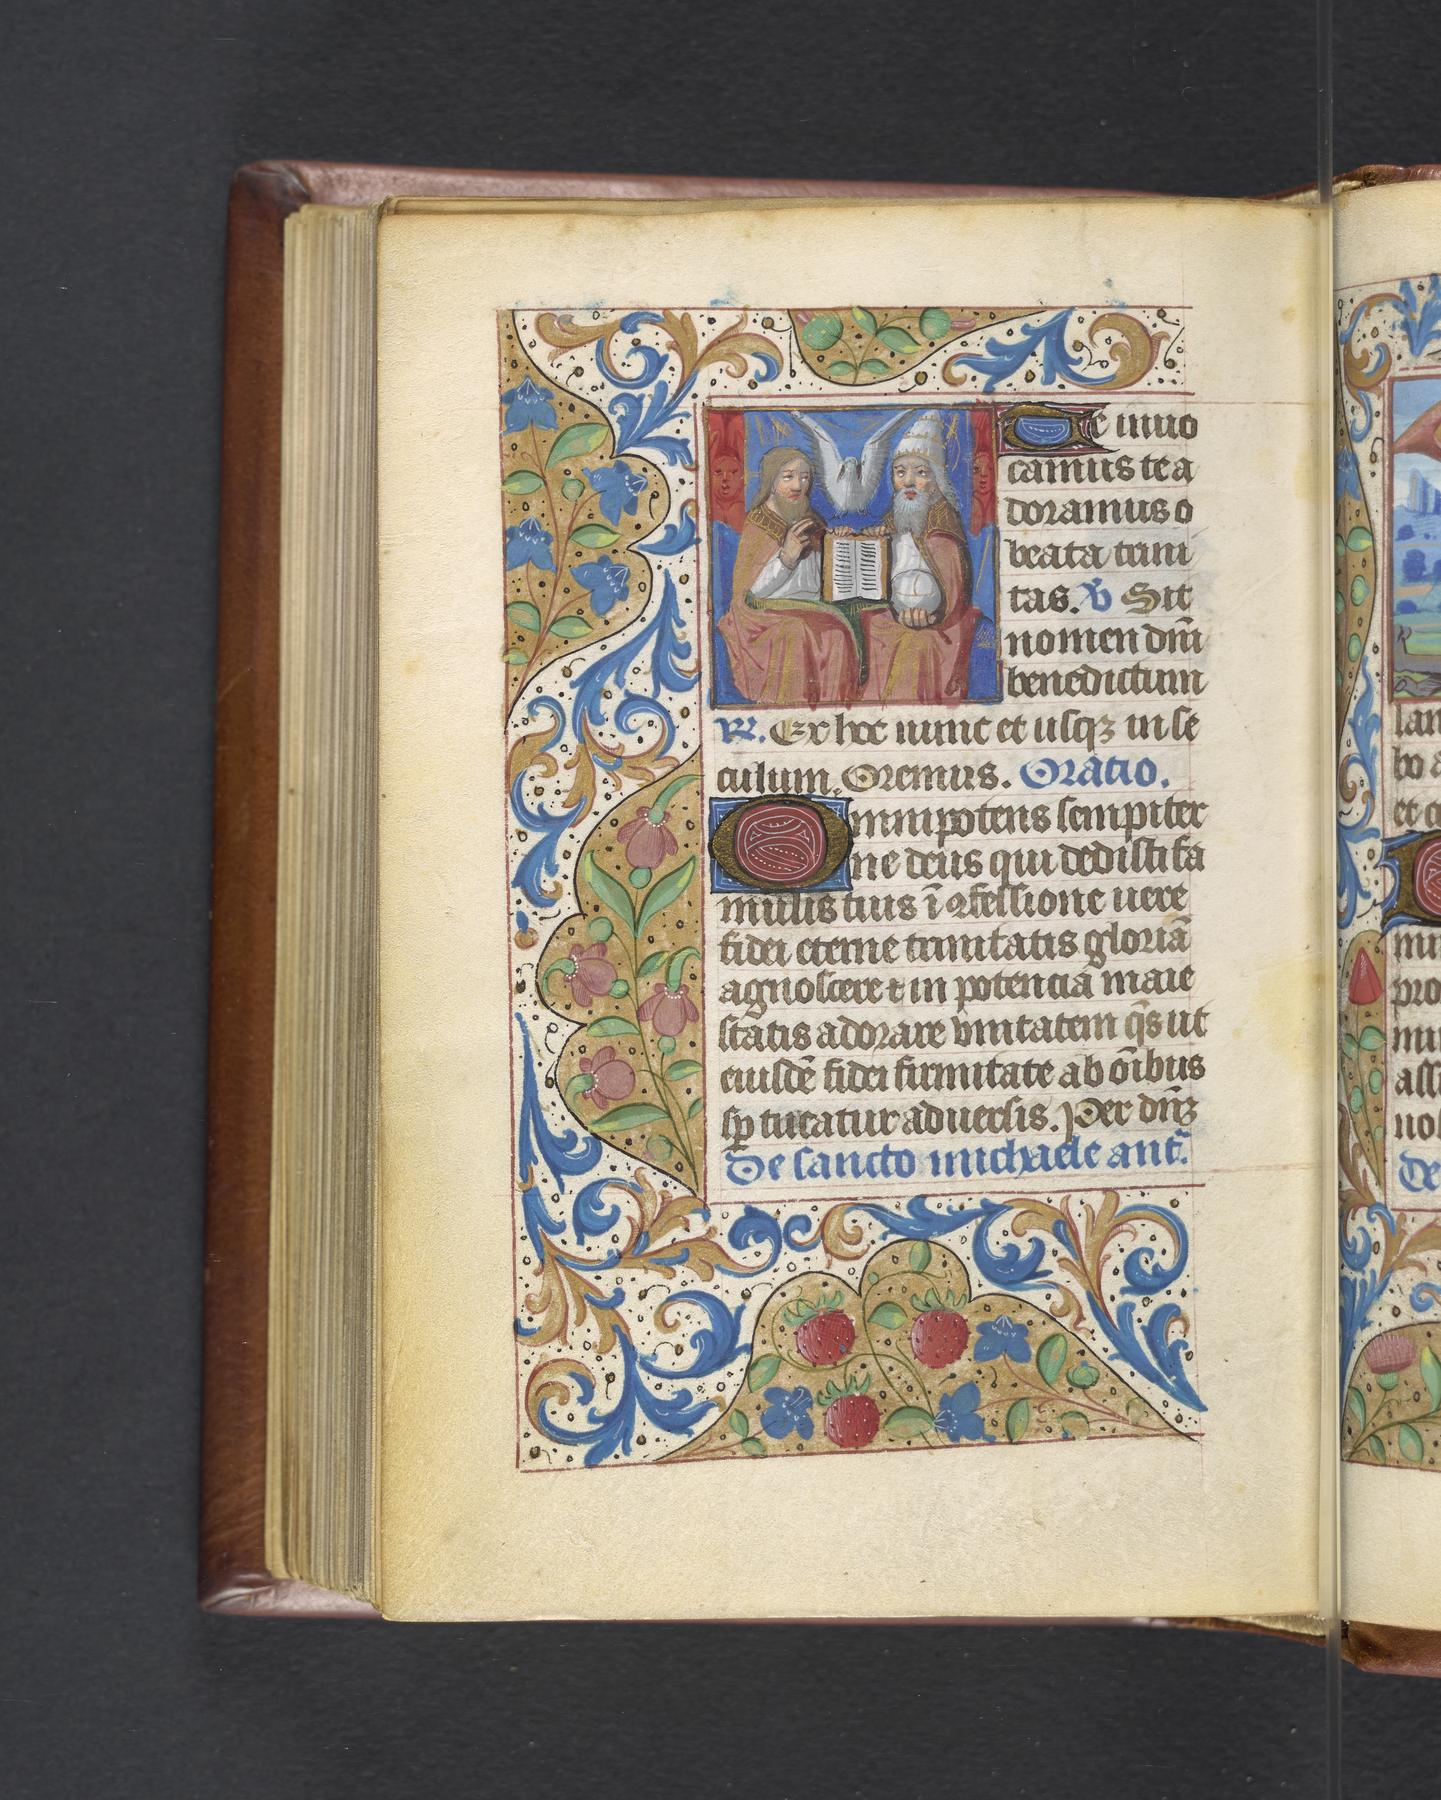 Te inuo
camus te a
doramus o
beata trini
tas. ℣ Sit
nomen dñi
benedictum
℟. Ex hoc nunc et usqꝫ in se
culum. Oremus. Oratio.
Omnipotens sempiter
ne deus qui dedisti fa
mulis tuis ī ꝯfessione uere
fidei eterne trinitatis gloriā
agnoscere ⁊ in potencia maie
statis adorare vnitatem q̄s ut
eiusdē fidei firmitate ab oībus
sꝑ tueatur aduersis. Per dñꝫ
De sancto michaele ant̃.
lan
bo a
et c
mi
pro
mi
assi
nos
De